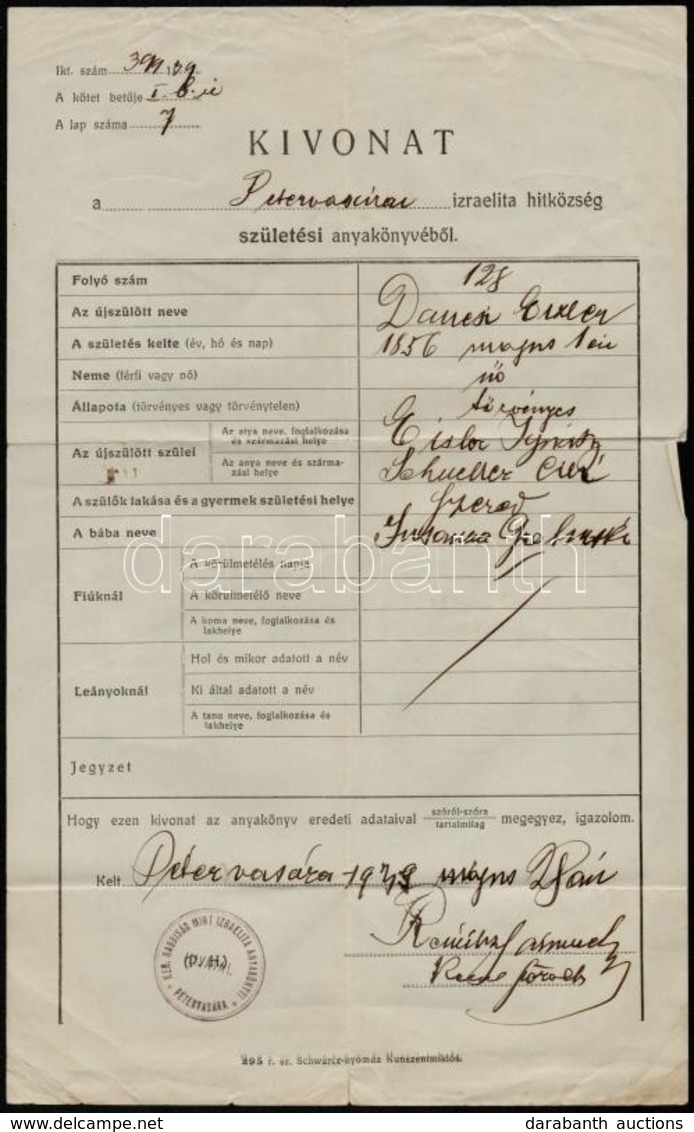 Ikt. szám 39
A kötet betűje I.
A lap száma 7
KIVONAT
a Pétervásárai izraelita hitközség
születési anyakönyvéből.
Folyó szám 128
Az újszülött neve
A születés kelte (év, hó és nap) 1856 május 1 én
Neme (férfi vagy nő) nő
Állapota (törvényes vagy törvénytelen) törvényes
Az újszülött szülei
Az atya neve, foglalkozása
és származási helye
Az anya neve és szárma-
zási helye
A szülők lakása és a gyermek születési helye
A bába neve
darabanth
Fiúknál
A körülmetélés napja
A körülmetélő neve
A koma neve, foglalkozása és
lakhelye
Leányoknál
Hol és mikor adatott a név
Ki által adatott a név
A tana neve, foglalkozása és
lakhelye
Jegyzet
Hogy ezen kivonat az anyakönyv eredeti adataival szóról-szóra
tartalmilag megegyez, igazolom.
Kelt Pétervására 1939 május
KER. RABBISÁG MINT IZRAELITA ANYAKÖNYVI
(P.H.)
PÉTERVÁSÁRA
295 r. sz. Schwárcz-nyomda Kunszentmiklós.
darabanth auctions